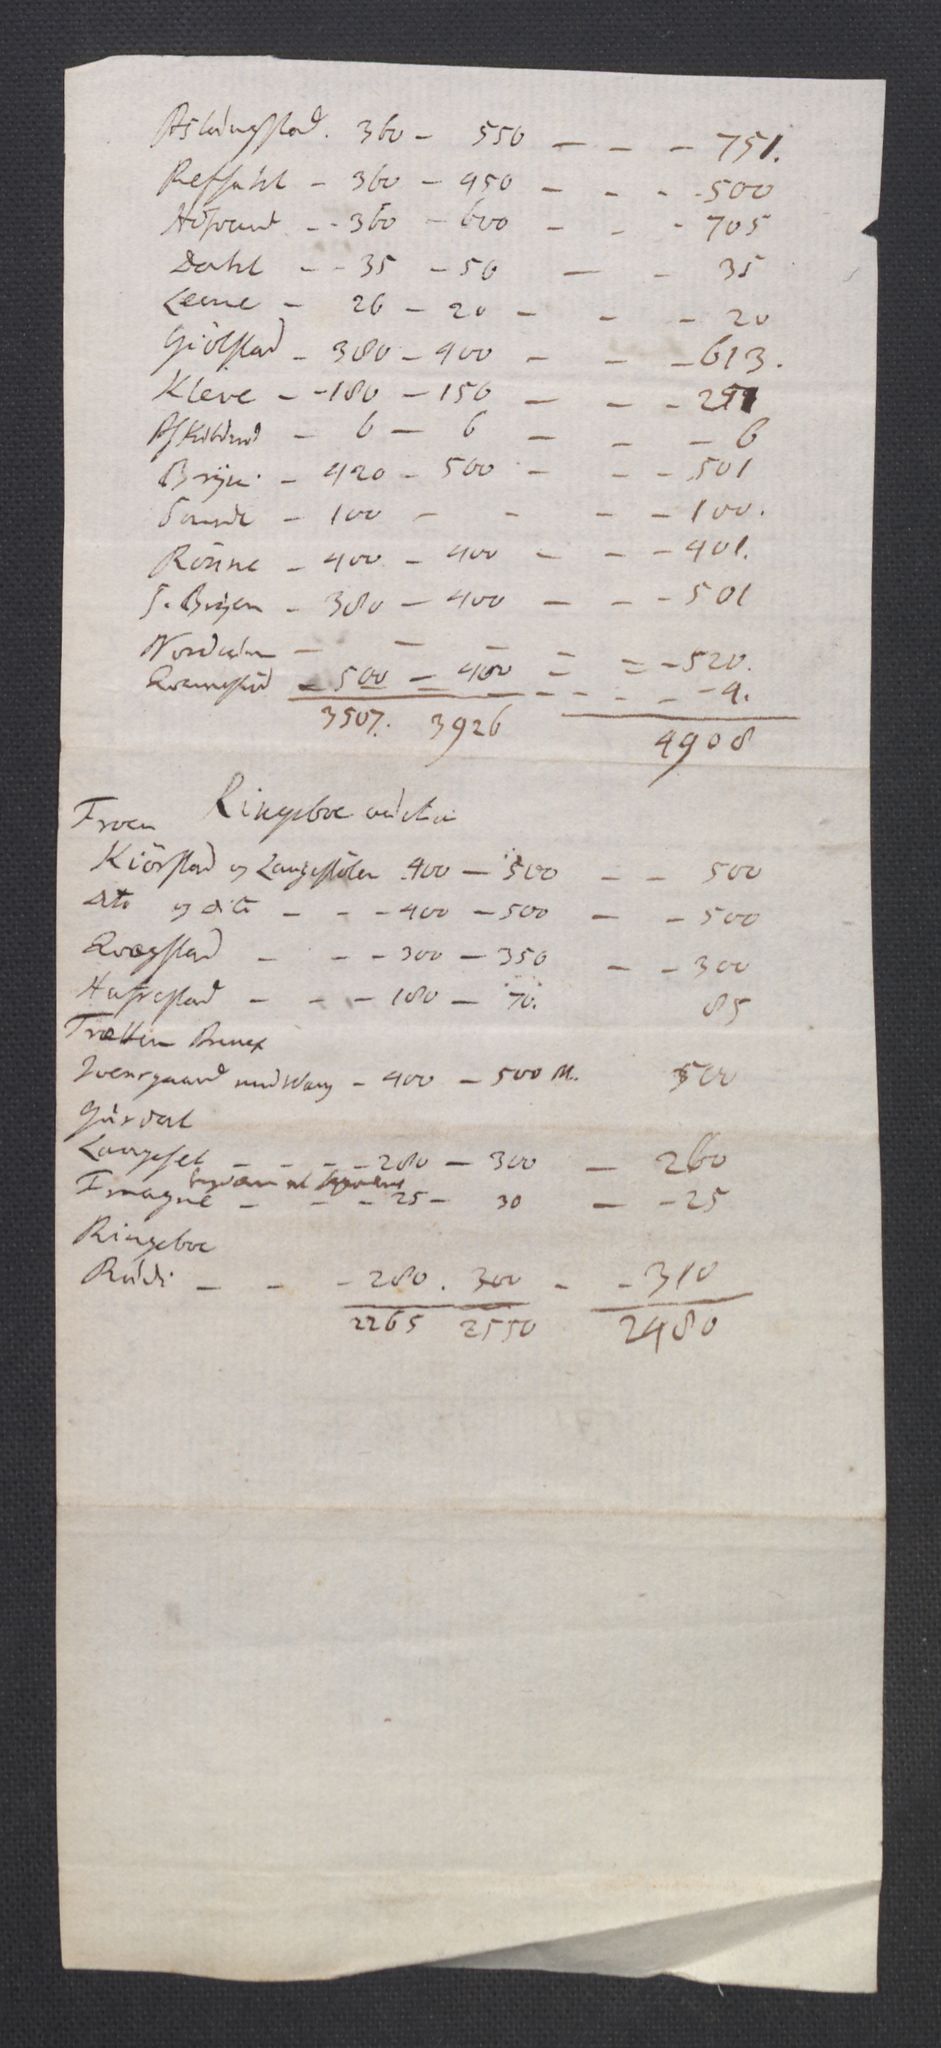 Aslougstad. 360 - 550 - - - 751.
Refsahl - 360 - 450 - - - 500
Hofvand - - 360 - 600 - - - 705
Dahl - - 35 - 50 - - 35
Leene - 26 - 20 - - - 20
Giölstad - 380 - 400 - - - 613.
Kleve - - 180 - 150 - - - 251
- 6 - 6 - - - 6
Bryn - 420 - 500 - - - 501
Sande - 100 - - - - 100.
Rönne - 400 - 400 - - - 401.
S. Bryen - 380 - 400 - - - 501
Nordalen - - - - - - 520.
- 500 - 400 - - - - - 4.
3507. 3926 4908
Froen Ringeboe
Kiörstad og Langestölen 400 - 500 - - 500
dito og dito - - - 400 - 500 - - 500
Qvægstad - - - 300 - 350 - - 300
Hafrestad - - - 180 - 70. 85
Trætten Annex
Iversgaard med Wang - 400 - 500 M. 500
Gusdal
Langset - - - - 280 - 300 - 260
Fmagne - - - 25 - 30 - - 25
Ringeboe
Rudi - - - - 280 . 300 - - 310
2265 2550 2480